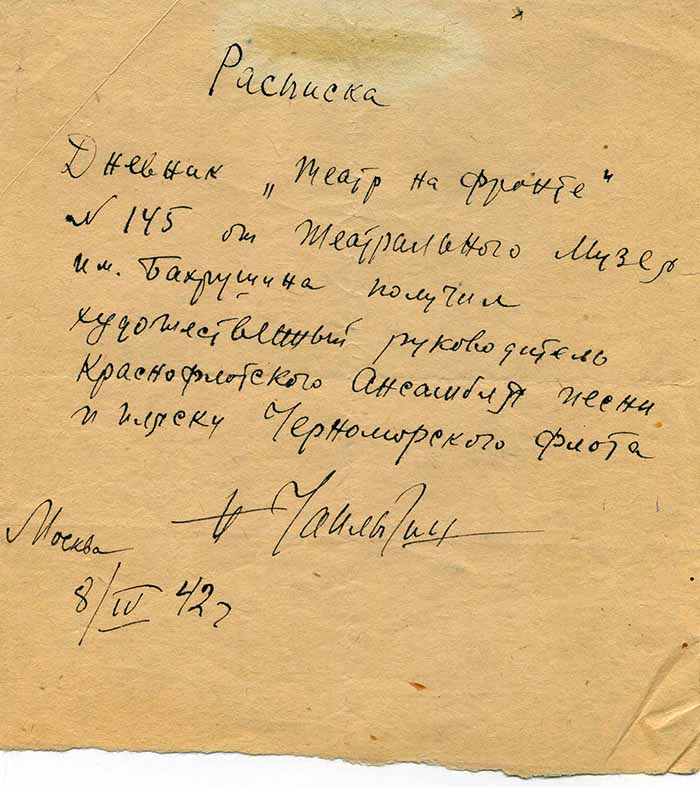 Расписка
Дневник „Театр на фронте"
N 145 от Театрального Музея
им. Бахрушина получил
художественный руководитель
Краснофлотского Ансамбля песни
и пляски Черноморского флота
Чаплыгин
Москва
8/IV 42 г